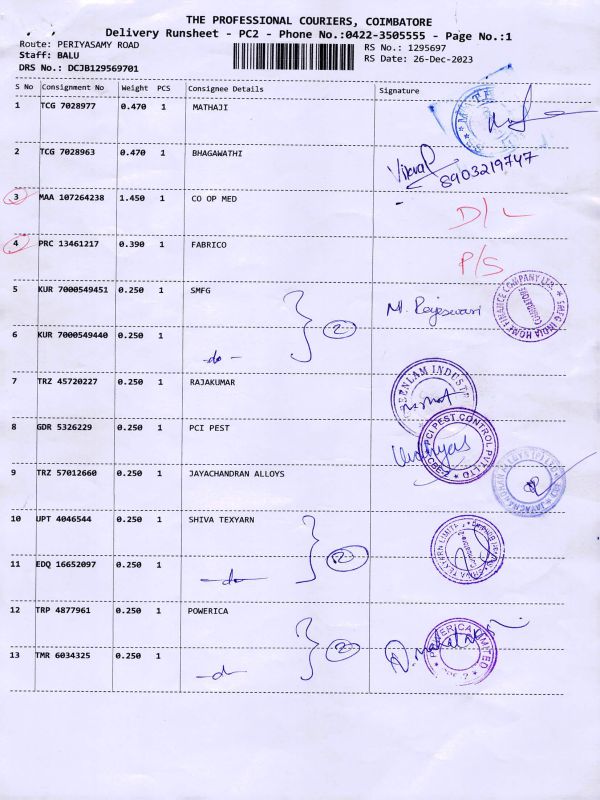 THE PROFESSIONAL COURIERS, COIMBATORE
Delivery Runsheet - PC2 - Phone No.:0422-3505555 - Page No.:1
Route: PERIYASAMY ROAD RS No.: 1295697
Staff: BALU RS Date: 26-Dec-2023
DRS No.: DCJB129569701
S No Consignment No Weight PCS Consignee Details Signature
1 TCG 7028977 0.470 1 MATHAJI
2 TCG 7028963 0.470 1 BHAGAWATHI
8903219747
3 MAA 107264238 1.450 1 CO OP MED D/L
4 PRC 13461217 0.390 1 FABRICO P/S
5 KUR 7000549451 0.250 1 SMFG
SMFG INDIA HOME FINANCE COMPANY LTD. COIMBATORE
6 KUR 7000549440 0.250 1 -do- 2
7 TRZ 45720227 0.250 1 RAJAKUMAR
8 GDR 5326229 0.250 1 PCI PEST PCI PEST CONTROL PVT. LTD CBE-2
9 TRZ 57012660 0.250 1 JAYACHANDRAN ALLOYS
10 UPT 4046544 0.250 1 SHIVA TEXYARN
SHIVA TEXYARN LIMITED
11 EDQ 16652097 0.250 1 -do- 2
12 TRP 4877961 0.250 1 POWERICA POWERICA LIMITED
13 TMR 6034325 0.250 1 -do- 2